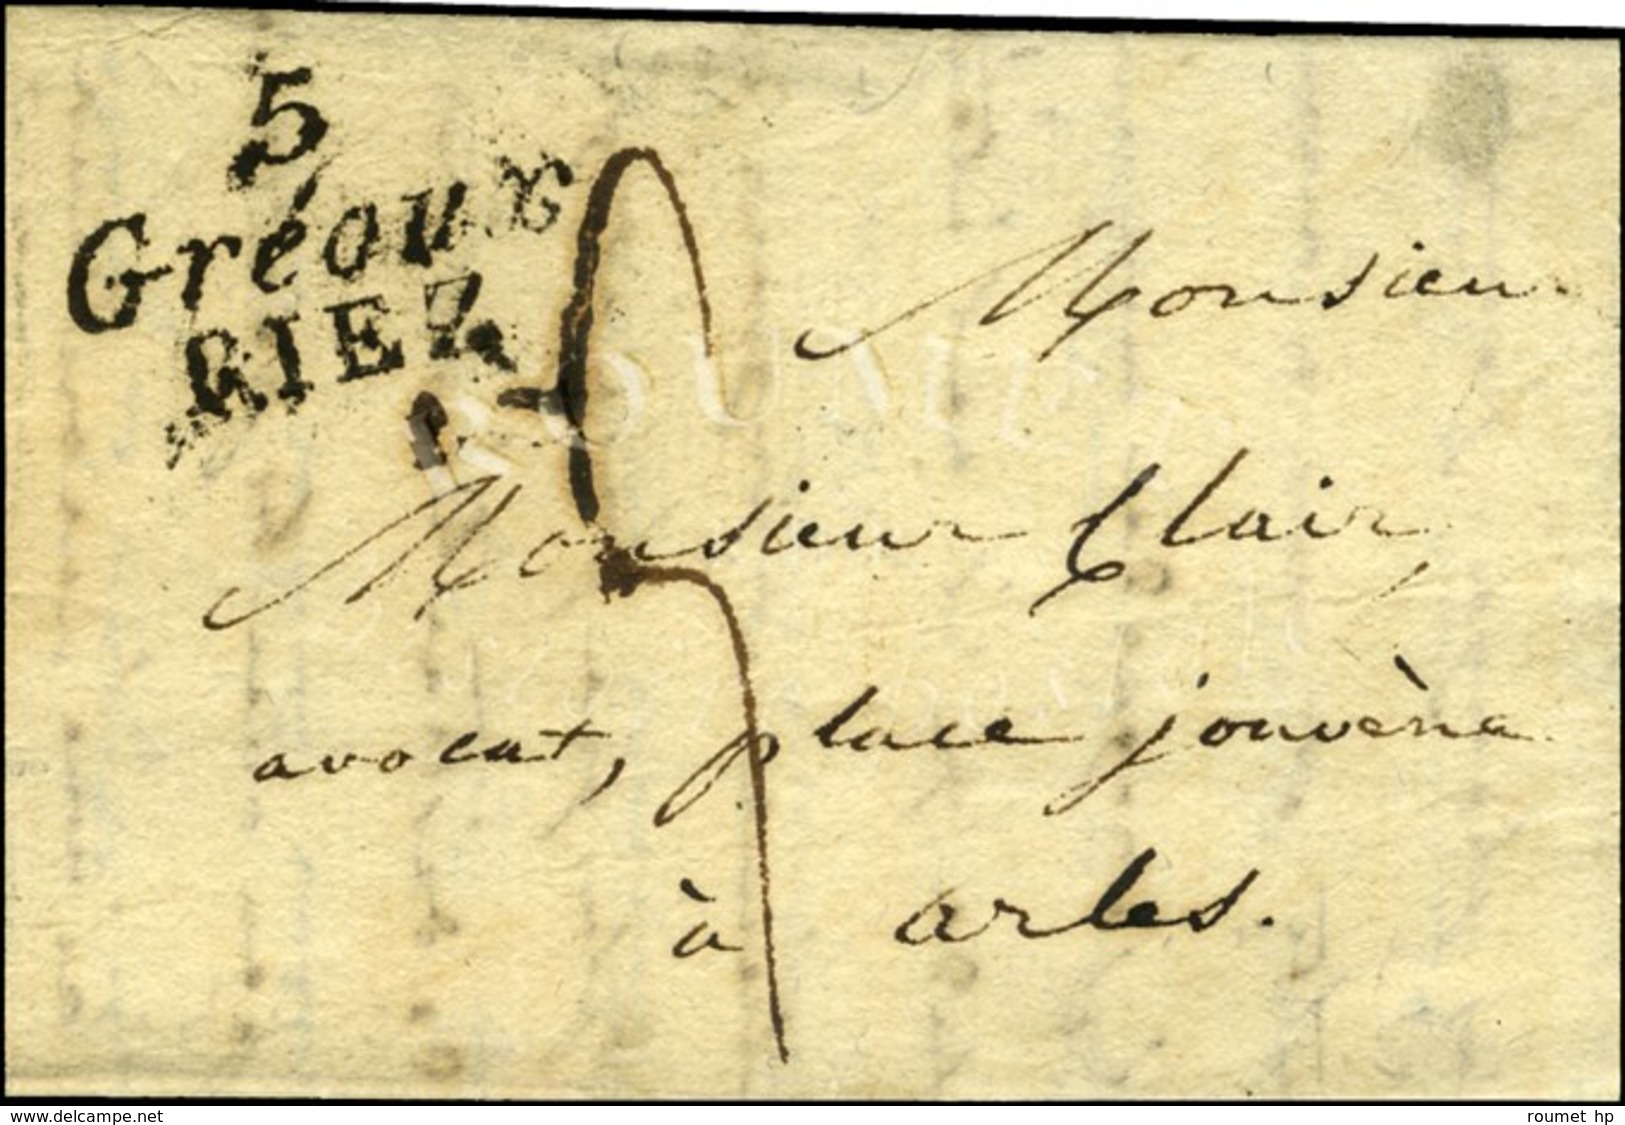 5
Gréoux
RIEZ
Monsieur
ROUMET
Monsieur Clair,
avocat, place jouvène
à arles.
www.delcampe.net
roumet hp